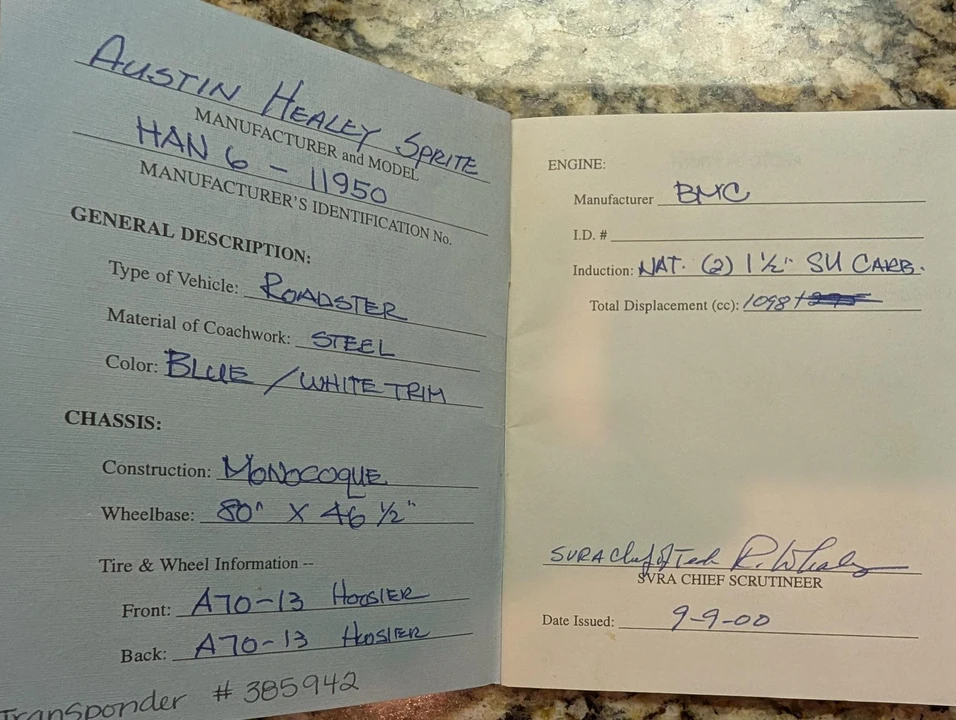 AUSTIN HEALEY SPRITE
MANUFACTURER and MODEL
HAN 6 - 11950
MANUFACTURER'S IDENTIFICATION No.
GENERAL DESCRIPTION:
Type of Vehicle: ROADSTER
Material of Coachwork: STEEL
Color: BLUE / WHITE TRIM
CHASSIS:
Construction: MONOCOQUE
Wheelbase: 80" X 46 1/2"
Tire & Wheel Information --
Front: A70-13 HOOSIER
Back: A70-13 HOOSIER
Transponder # 385942
ENGINE:
Manufacturer BMC
I.D. #
Induction: NAT. (2) 1 1/2" SU CARB.
Total Displacement (cc): 1098 +
SVRA Chief of Tech R.
SVRA CHIEF SCRUTINEER
Date Issued: 9-9-00